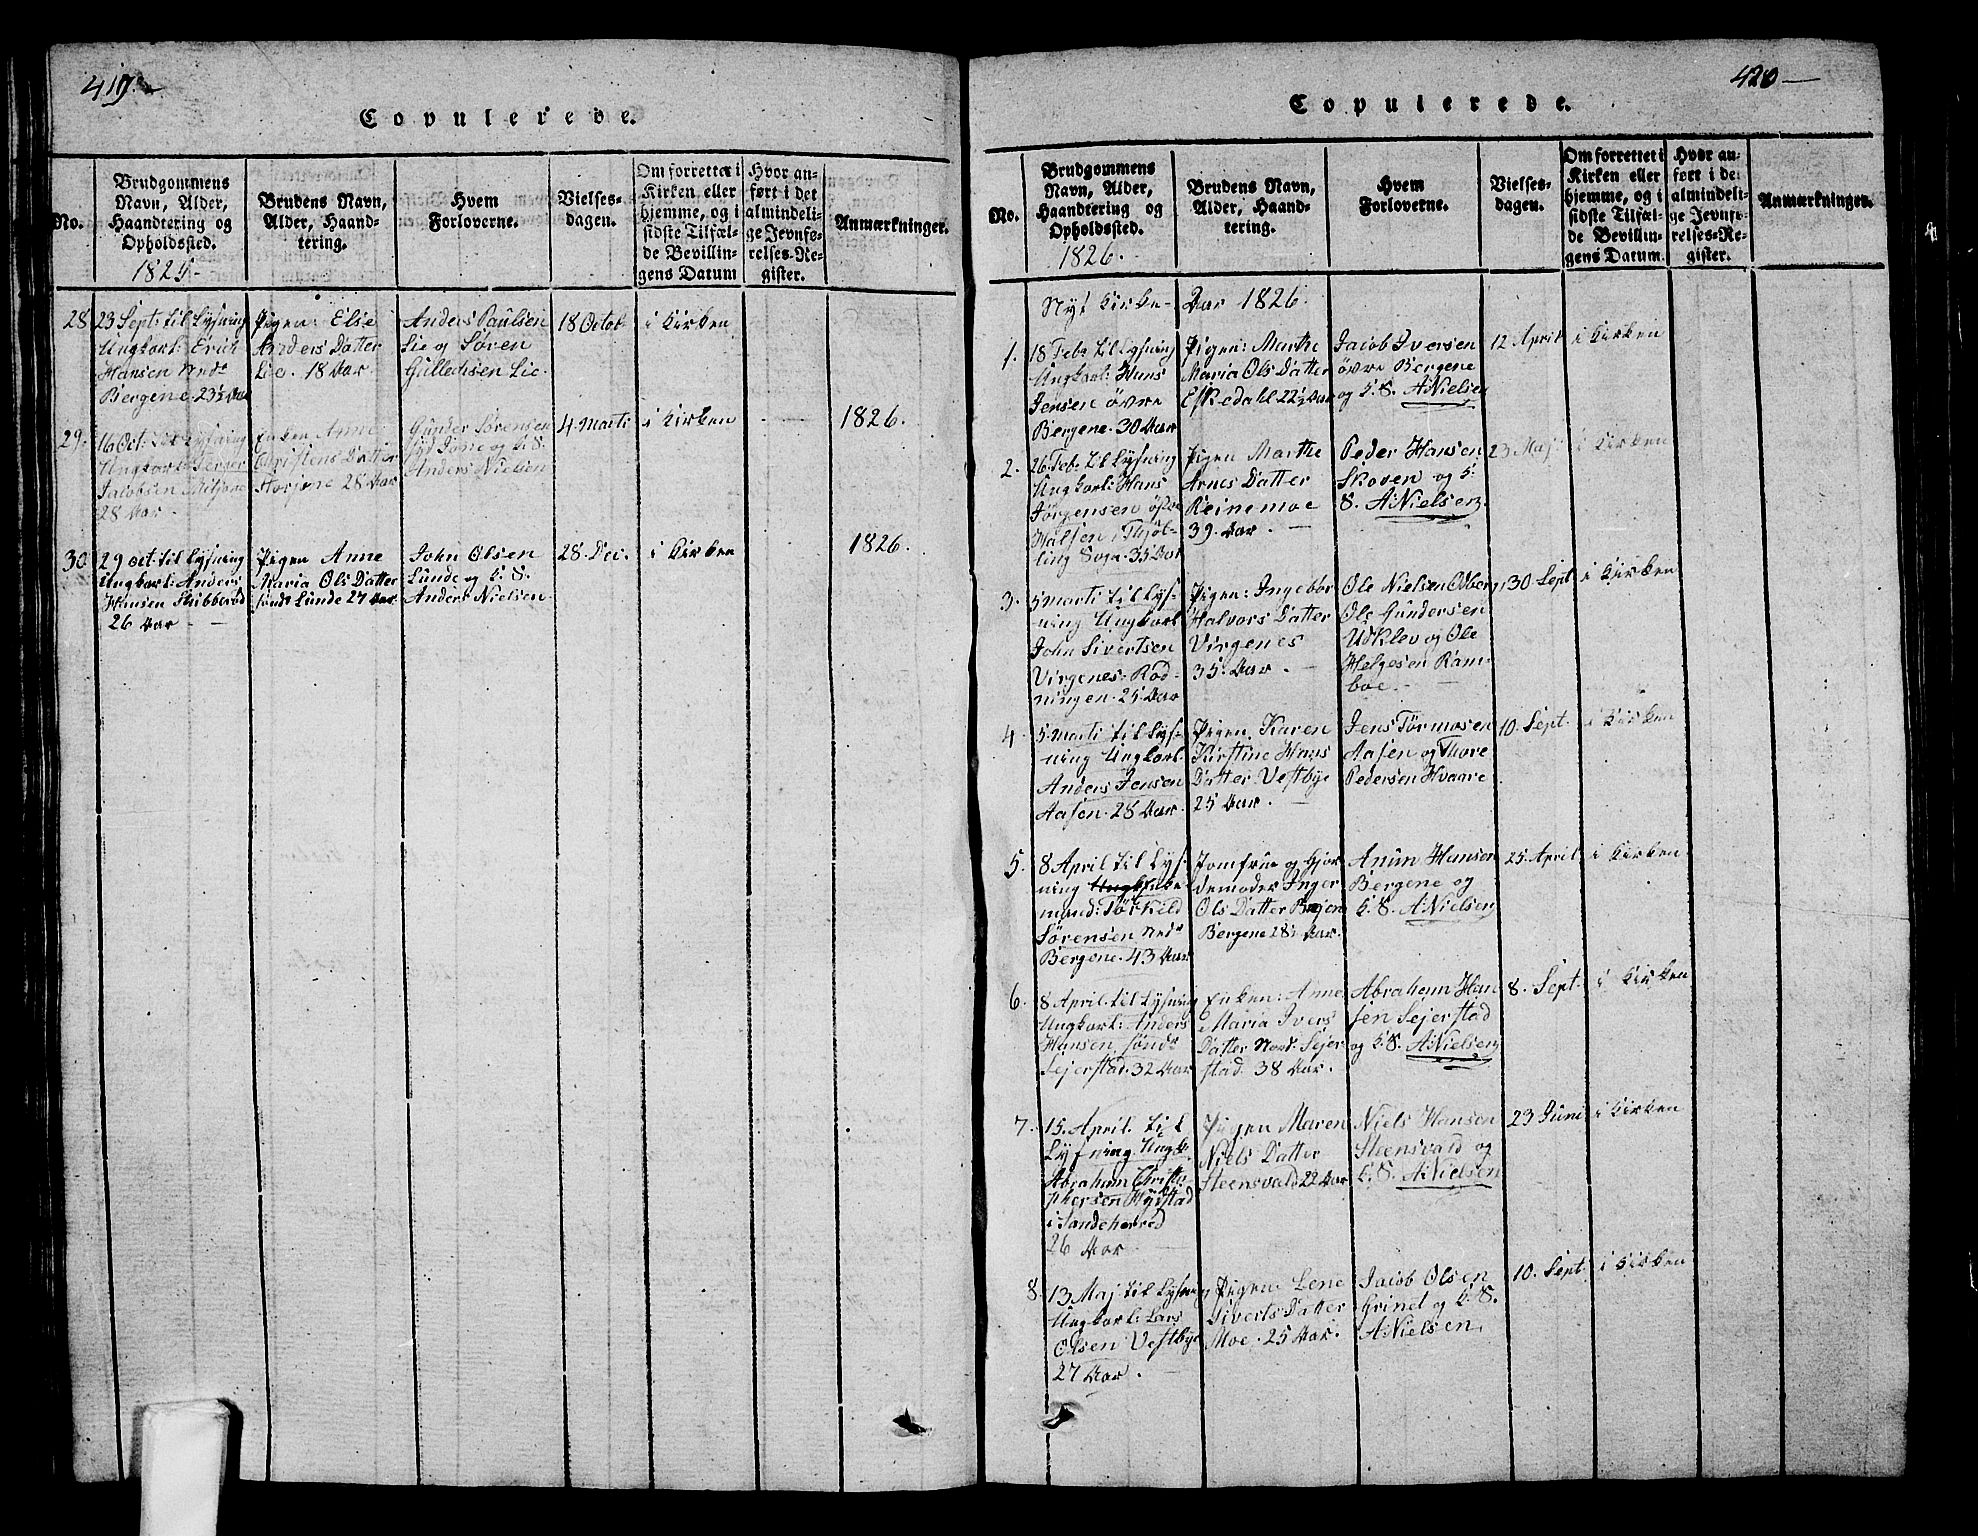 419.
Copulerede.
No.
Brudgommens
Navn, Alder,
Haandtering og
Opholdssted.
1825.
Brudens Navn,
Alder, Haand-
tering.
Hvem
Forloverne.
Vielses-
dagen.
Om forrettet i
Kirken eller
hjemme, og i
sidste Tilfæl-
de Bevillin-
gens Datum
Hvor an-
ført i det
almindeli-
ge Jevnfø-
relses-Re-
gister.
Anmærkninger.
28
23 Sept: til Lysning
Ungkarl: Erich
Hansen Nedr
Bergene. 23½ Aar
Pigen: Else
Anders Datter
Lie. 18 Aar
Anders Paulsen
Lie og Søren
Gullechsen Lie.
18 Octob
i Kirken
29.
16 Oct: til Lysning
Ungkarl: Terjer
Jacobsen
28 Aar
Enken Anne
Christens Datter
28 Aar
Gunder Sørensen
og K. S.
Anders Nielsen
4. Marti
i Kirken
1826.
30
29 oct: til Lysning
Ungkarl: Anders
Hansen Skibberød
26 Aar
Pigen Anne
Maria Ols Datter
søndr Lunde 27 Aar
John Olsen
Lunde og K. S.
Anders Nielsen.
28. Dec.
i Kirken
1826.
420
Copulerede.
No.
Brudgommens
Navn, Alder,
Haandtering og
Opholdssted.
1826.
Brudens Navn,
Alder, Haand-
tering.
Hvem
Forloverne.
Vielses-
dagen.
Om forrettet i
Kirken eller
hjemme, og i
sidste Tilfæl-
de Bevillin-
gens Datum.
Hvor an-
ført i de
almindeli-
ge Jevnfø-
relses-Re-
gister.
Anmærkninger.
Nyt Kirke-Aar 1826.
1.
18 Feb: til Lysning
Ungkarl: Hans
Jensen øvre
Bergene. 30 Aar
Pigen: Marthe
Maria Ols Datter
Eskedahl 22½ Aar
Jacob Iversen
øvre Bergene
og K. S. A. Nielsen
12 April
i Kirken
2.
26 Feb: til Lysning
Ungkarl: Hans
Jørgensen østre
Halsen i Thjøl-
ling Sogn. 35 Aar
Pigen Marthe
Arnes Datter
Reinemoe
39. Aar.
Peder Hansen
Skoven og K.
S. A. Nielsen.
23 Maj.
i Kirken
3.
5 Marti til Lys-
ning Ungkarl
John Sivertsen
Virgenes: Rød-
ningen. 25 Aar
Pigen: Ingebor
Halvors Datter
Virgenes
35. Aar.
Ole Nielsen Odberg,
Ole Gundersen
Udklev og Ole
Helgesen Ram-
boe.
30 Sept
i Kirken
4.
5. Marti til Lys-
ning Ungkarl
Anders Jensen
Aasen. 28 Aar.
Pigen. Karen
Kirstine Hans
Datter Vestbye
25 Aar.
Jens Tormosen
Aasen og Thore
Pedersen Hvaare
10. Sept.
i Kirken
5.
8 April til Lys-
ning Enke
mand: Tørkild
Sørensen Nedr
Bergene. 43 Aar
Jomfrue og Gjor
demoder Inger
Ols Datter
Bergene 28½ Aar.
Anun Hansen
Bergene og
K. S. A. Nielsen
25 April
i Kirken
6.
8 April. til Lysning
Ungkarl: Anders
Hansen søndr
Sejerstad. 32 Aar
Enken: Anne
Maria Ivers
Datter Nord: Sejer
stad. 38 Aar.
Abraham Han
sen Sejerstad
og K. S. A. Nielsen
8. Sept.
i Kirken
7.
15. April. til
Lysning. Ungk.
Abraham Christo
phersen Hystad
i Sandeherred
26 Aar
Pigen Maren
Niels Datter
Steensvald 22 Aar
Niels Hansen
Steensvald og
K. S. A. Nielsen
23 Juni
i Kirken
8.
13 Maj til Lysning
Ungkarl: Lars
Olsen Vestbye
27 Aar.
Pigen Lene
Siverts Datter
Moe. 25 Aar.
Jacob Olsen
Grinet og K. S.
A. Nielsen,
10. Sept.
i Kirken